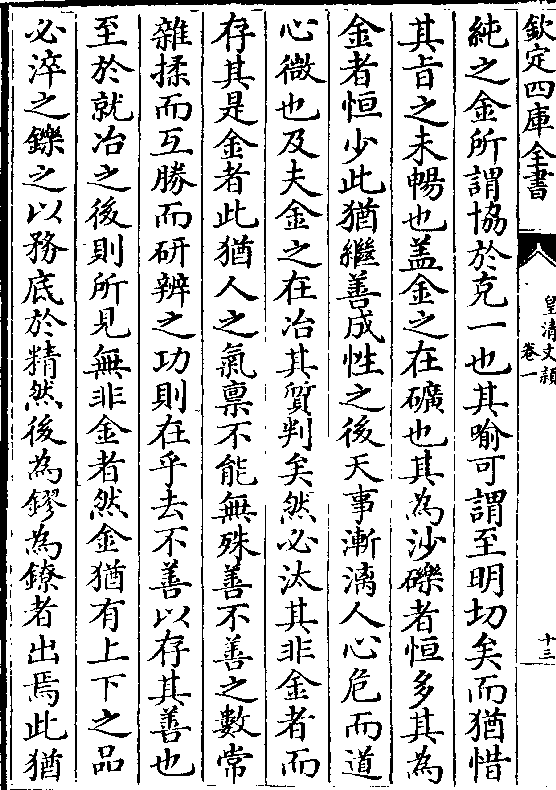 欽定四庫全書
皇清文穎
卷一
十三
純之金所謂協於克一也其喻可謂至明切矣而猶惜
其旨之未暢也盖金之在礦也其為沙礫者恒多其為
金者恒少此猶繼善成性之後天事漸漓人心危而道
心微也及夫金之在冶其質判矣然必汰其非金者而
存其是金者此猶人之氣稟不能無殊善不善之數常
雜揉而互勝而研辨之功則在乎去不善以存其善也
至於就冶之後則所見無非金者然金猶有上下之品
必淬之鑠之以務底於精然後為鏐為鐐者出焉此猶